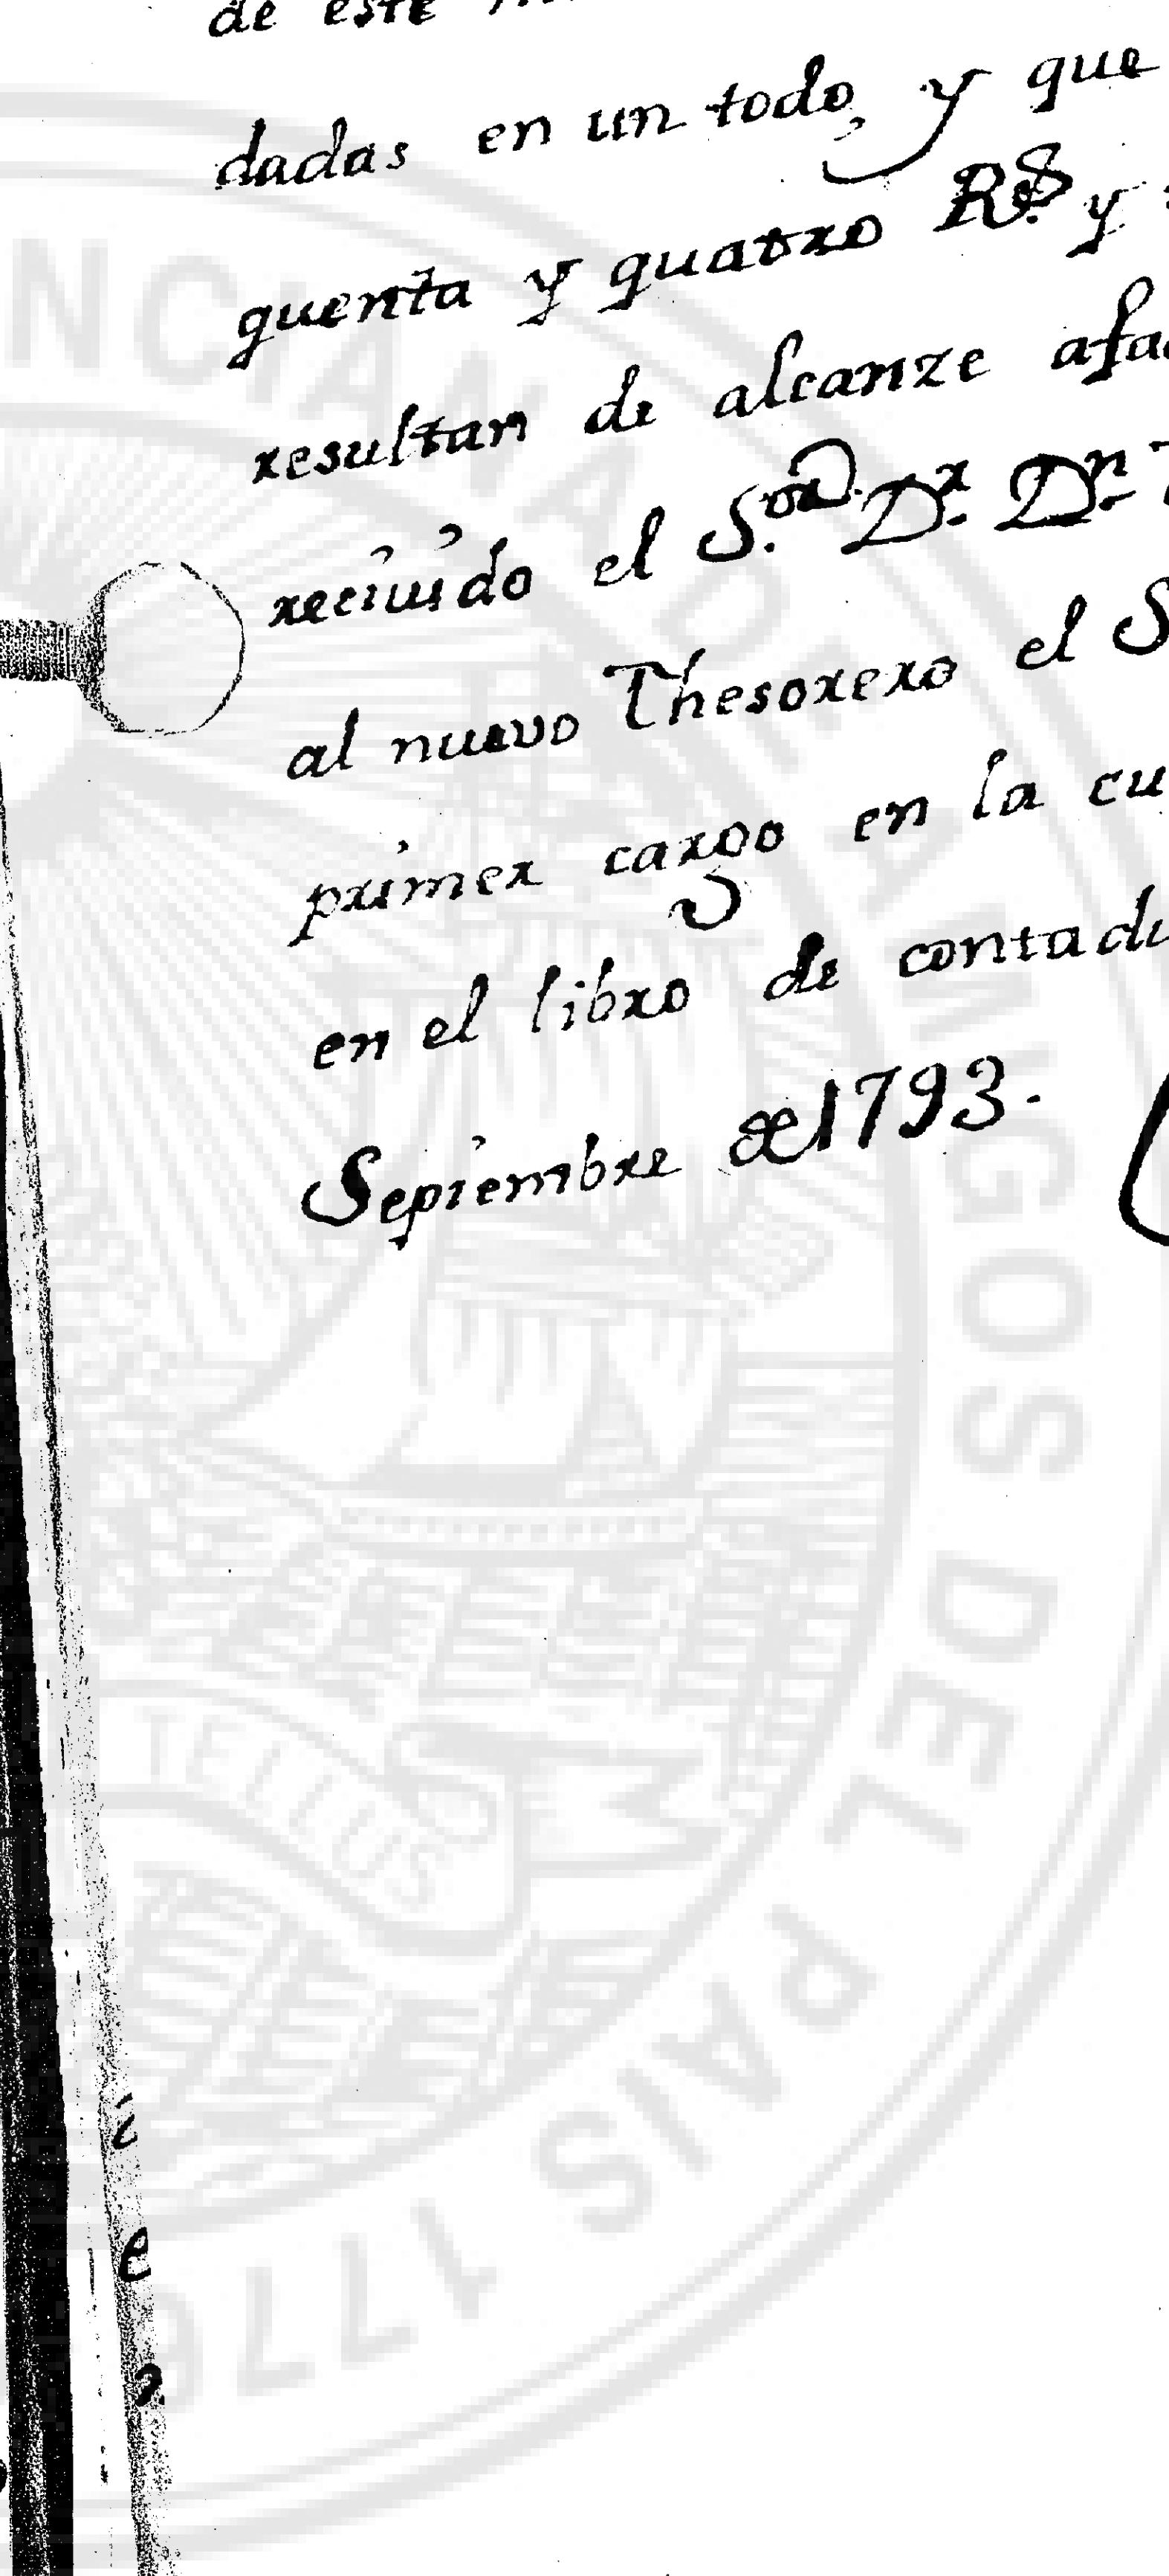 de este
dadas en un todo, y que
quenta y quatro R.s y
resultan de alcanze afa
recivido el S.or D.r D.n
al nuevo Thesorero el S
primer cargo en la cu
en el libro de contadu
Septiembre de 1793.